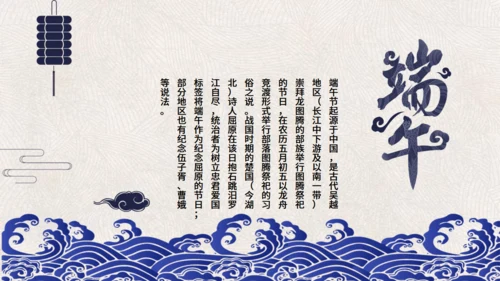 端午
端午节起源于中国,是古代吴越
地区(长江中下游及以南一带)
崇拜龙图腾的部族举行图腾祭祀
的节日,在农历五月初五以龙舟
竞渡形式举行部落图腾祭祀的习
俗之说。战国时期的楚国(今湖
北)诗人屈原在该日抱石跳汨罗
江自尽,统治者为树立忠君爱国
标签将端午作为纪念屈原的节日;
部分地区也有纪念伍子胥、曹娥
等说法。